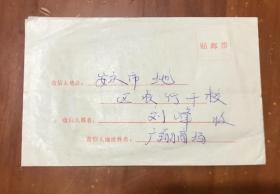 贴邮票
收信人地址:安庆市地
区农行干校
收信人姓名:刘峰 收
寄信人地址姓名:广